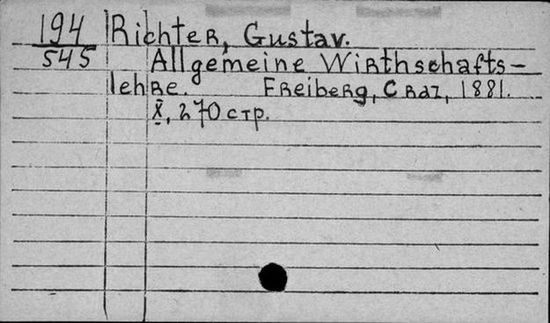 194 Richter, Gustav.
545 Allgemeine Wirthschafts-
lehre. Freiberg, Craz, 1881.
X, 270 стр.